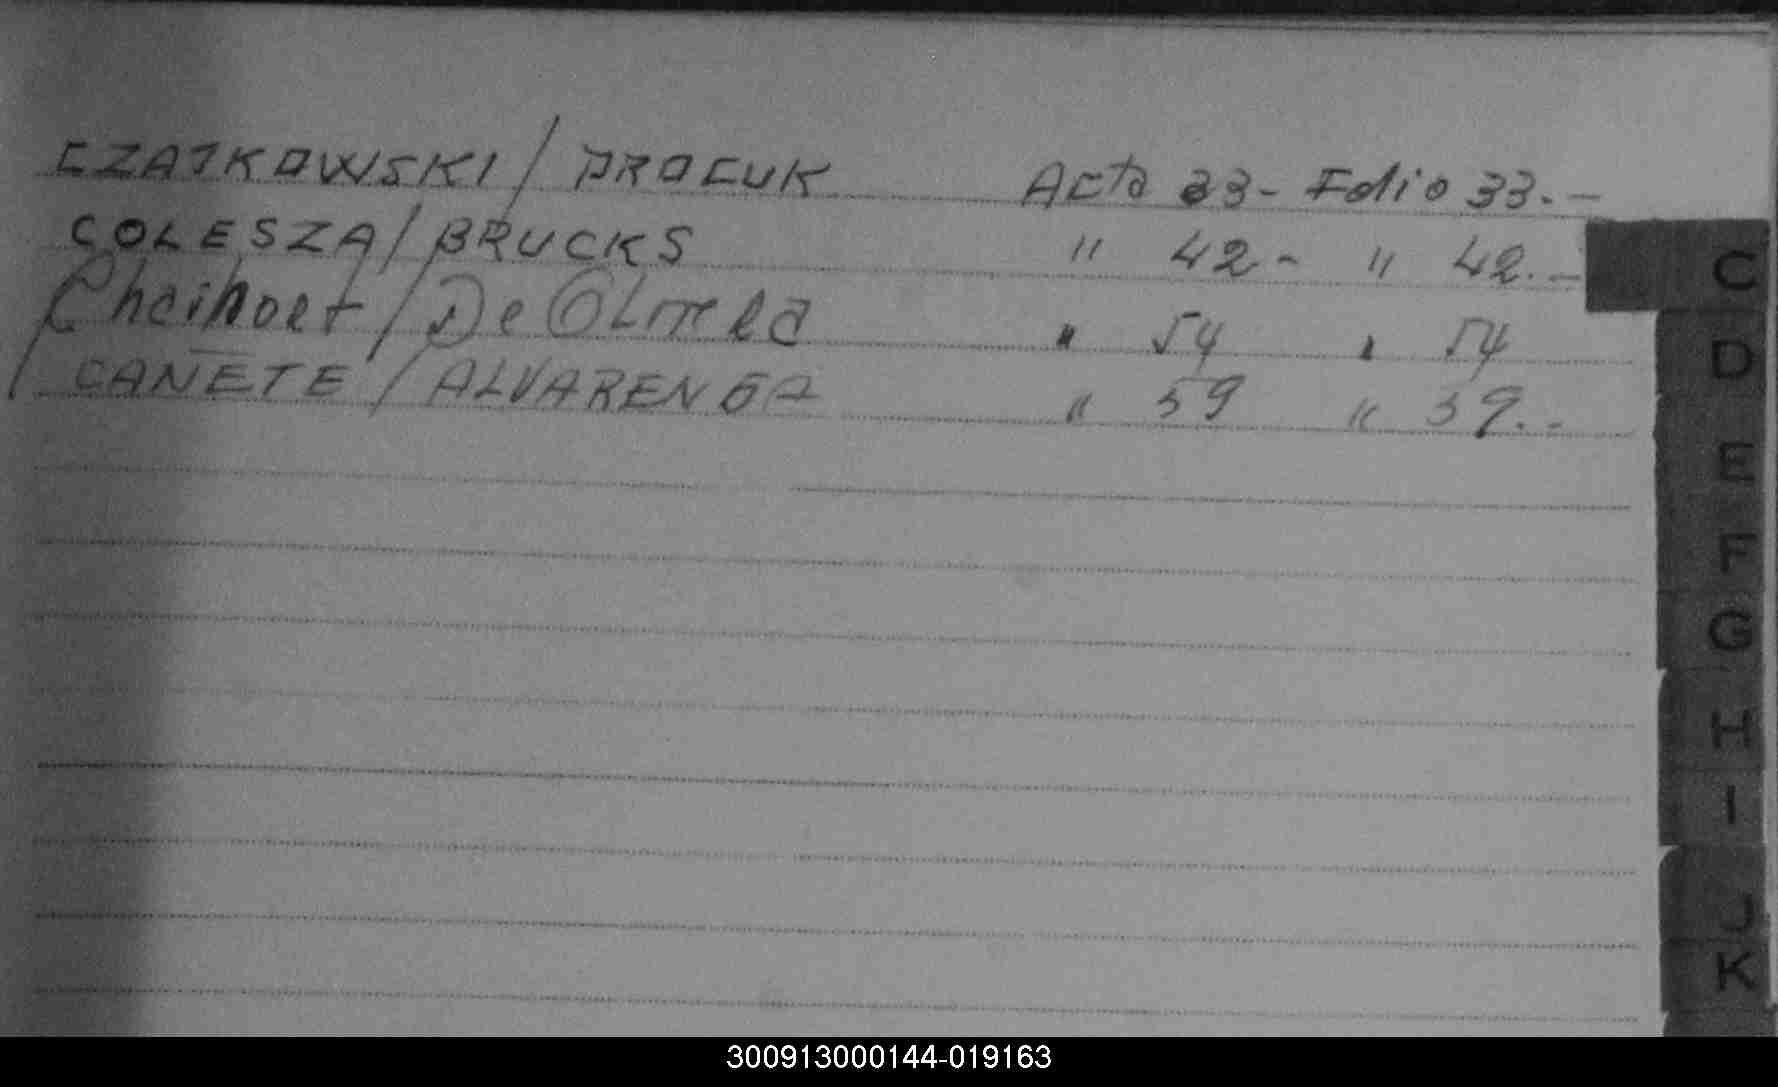 CZAJKOWSKI / PROCUK Acta 33 - Folio 33. -
COLESZA / BRUCKS " 42 - " 42. -
/ De OLmeda " 54 " 54
CAÑETE / ALVARENGA " 59 " 59. -
C
D
E
F
G
H
I
J
K
300913000144-019163